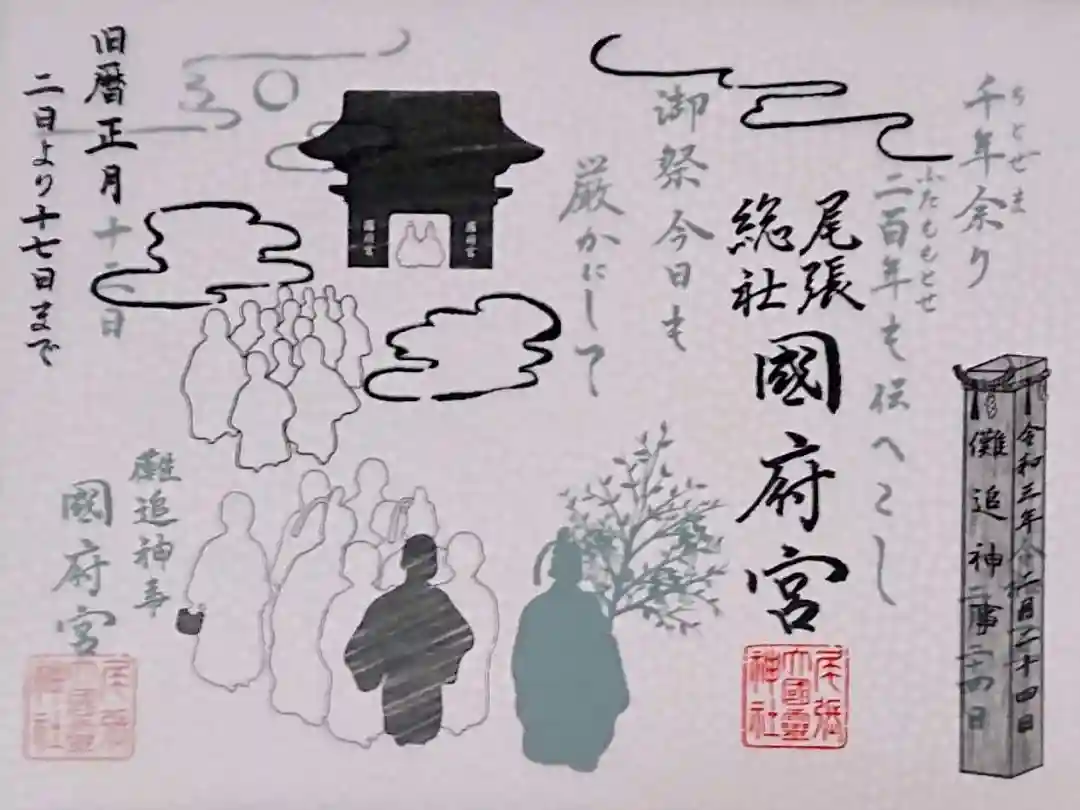 千年余り
ちとせま
二百年も伝へこし
ふたももとせ
御祭今日も
厳かにして
尾張
総社
國府宮
尾張
大國霊
神社
令和三年二月二十四日
儺追神事
旧暦正月十三日
二日より十七日まで
國府宮
國府宮
儺追神事
國府宮
尾張
大國霊
神社